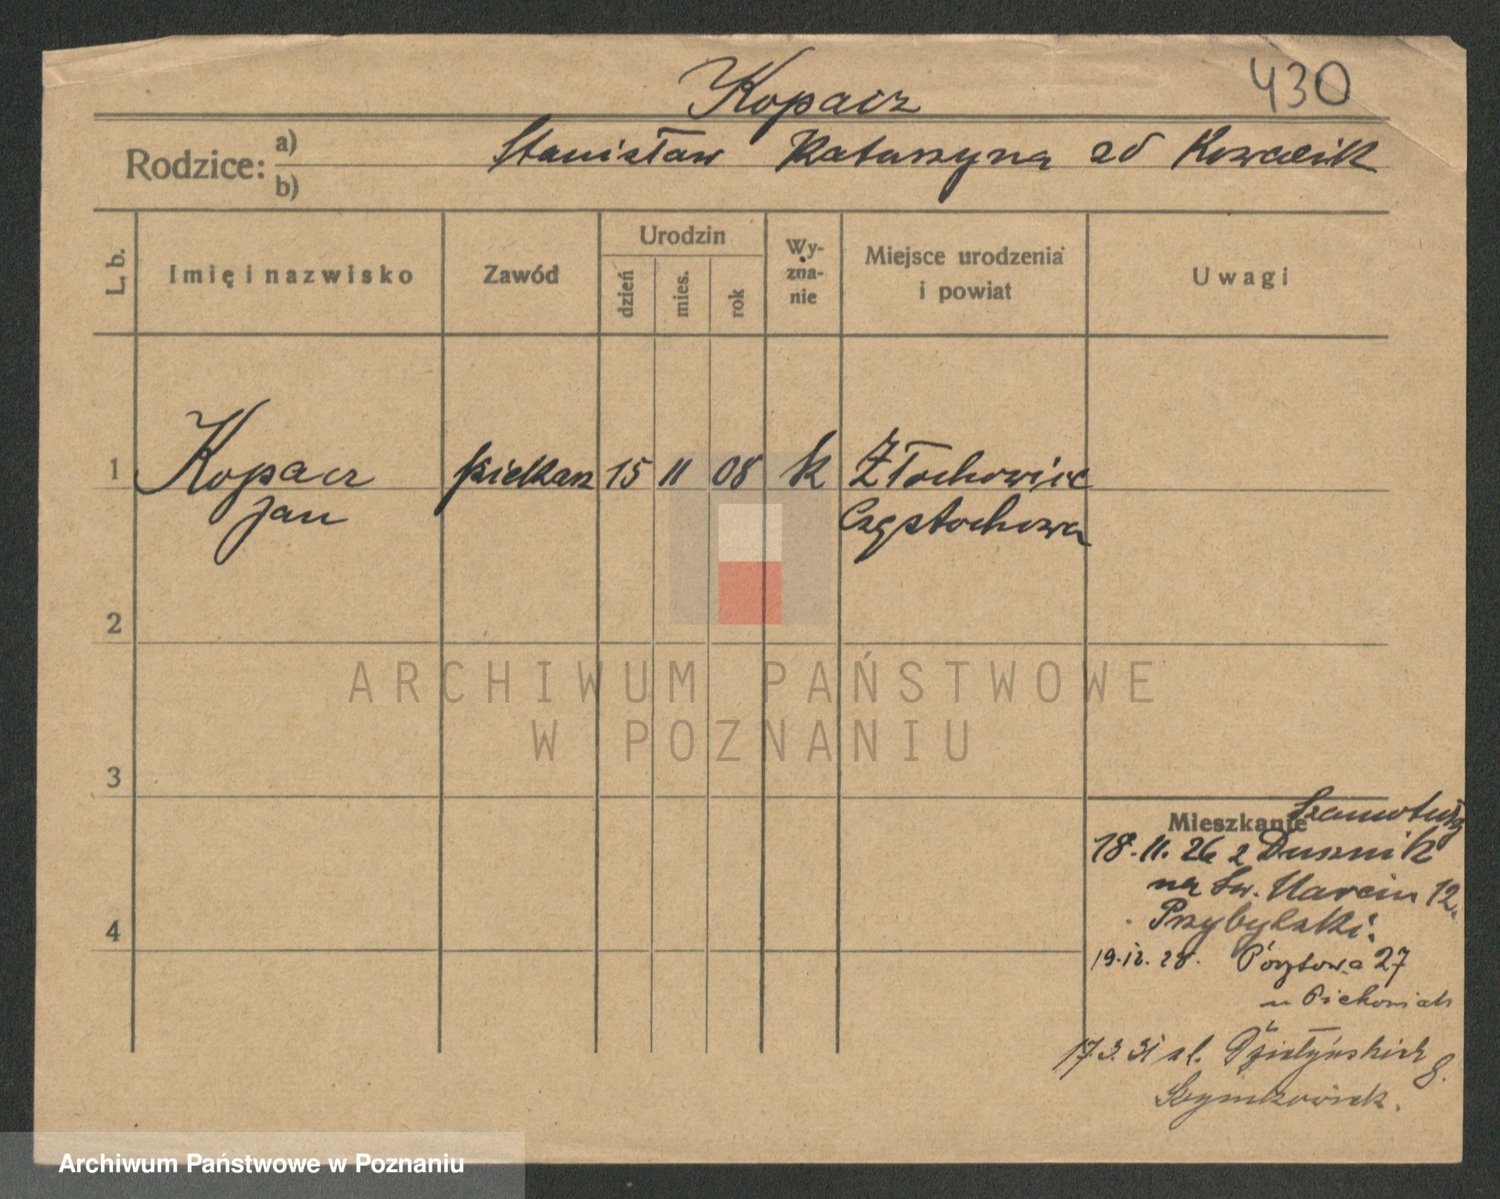 430
Kopacz
Rodzice: a) b)
Stanisław Katarzyna zd Kowalik
L. b.
Imię i nazwisko
Zawód
Urodzin
dzień
mies.
rok
Wy-
zna-
nie
Miejsce urodzenia
i powiat
Uwagi
1 Kopacz piekarz 15 11 08 k Złochowice
Jan Częstochowa
2
3
4
ARCHIWUM PAŃSTWOWE
W POZNANIU
Mieszkanie Szamotuły
18.11.26 z Dusznik
na Św. Marcin 12.
Przybylski.
19.12.28. Pocztowa 27
u
17.3.31 al. Działyńskich 8.
Szymkowiak.
Archiwum Państwowe w Poznaniu